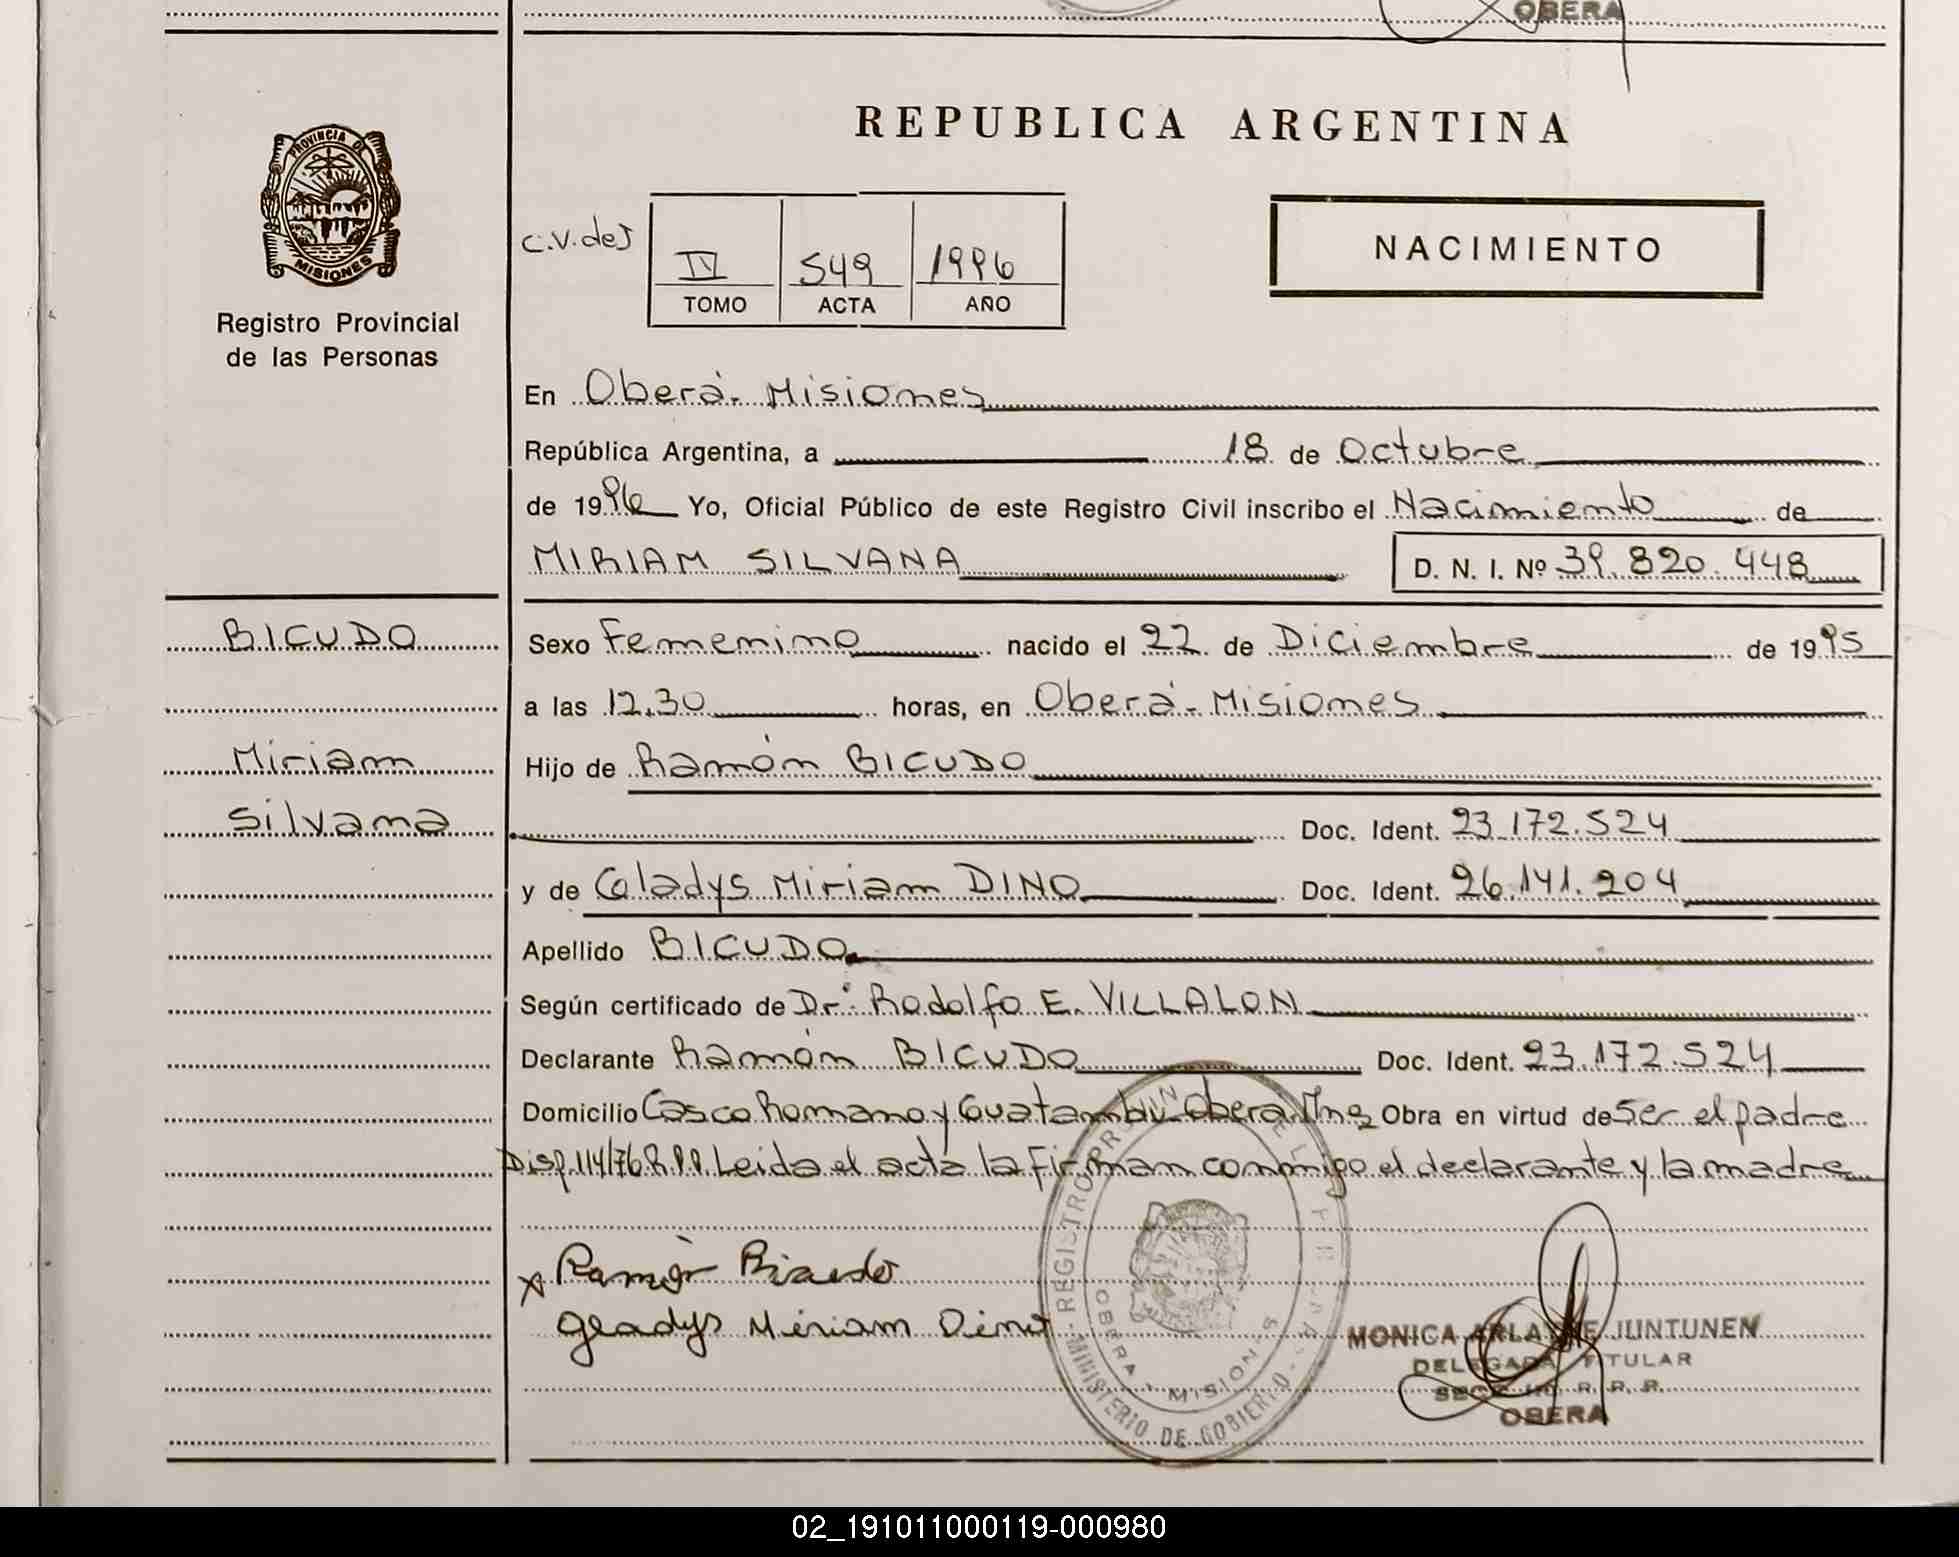 OBERA
PROVINCIA DE
MISIONES
Registro Provincial
de las Personas
REPUBLICA ARGENTINA
C.V. des
IV 549 1996
TOMO ACTA AÑO
NACIMIENTO
En Oberá - Misiones
República Argentina, a 18 de Octubre
de 1996 Yo, Oficial Público de este Registro Civil inscribo el Nacimiento de
MIRIAM SILVANA D. N. I. Nº 39.820.448
BICUDO
Miriam
Silvana
Sexo Femenino nacido el 22 de Diciembre de 1995
a las 12.30 horas, en Oberá - Misiones
Hijo de Ramón BICUDO
Doc. Ident. 23.172.524
y de Gladys Miriam DINO Doc. Ident. 26.141.204
Apellido BICUDO
Según certificado de Dr: Rodolfo E. VILLALON
Declarante Ramón BICUDO Doc. Ident. 23.172.524
Domicilio Casco Romano y Guatambú - Oberá Mnes Obra en virtud de Ser el padre
Disp. 114/76 R.P.P. Leida el acta la firman conmigo el declarante y la madre
x Ramón Bicudo
Gladys Miriam Dino
REGISTRO PROVIN
OBERA - MISIONES
MINISTERIO DE GOBIERNO
MONICA JUNTUNEN
DELEGADA TITULAR
R. P. P.
OBERA
02_191011000119-000980